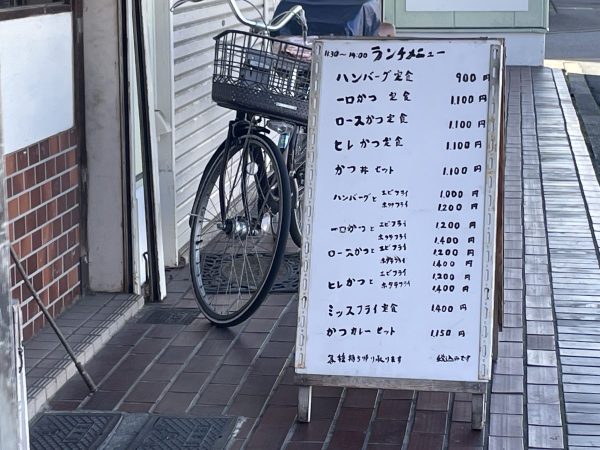 11:30〜14:00 ランチメニュー
ハンバーグ定食 900円
一口かつ 定食 1.100円
ロースかつ定食 1.100円
ヒレかつ定食 1.100円
かつ丼セット 1.100円
ハンバーグと エビフライ 1.000円
ホタテフライ 1.200円
一口かつと エビフライ 1.200円
ホタテフライ 1.400円
ロースかつと エビフライ 1.200円
ホタテフライ 1.400円
ヒレかつと エビフライ 1.200円
ホタテフライ 1.400円
ミックスフライ定食 1.400円
かつカレーセット 1.150円
各種持ち帰り承ります 税込みです